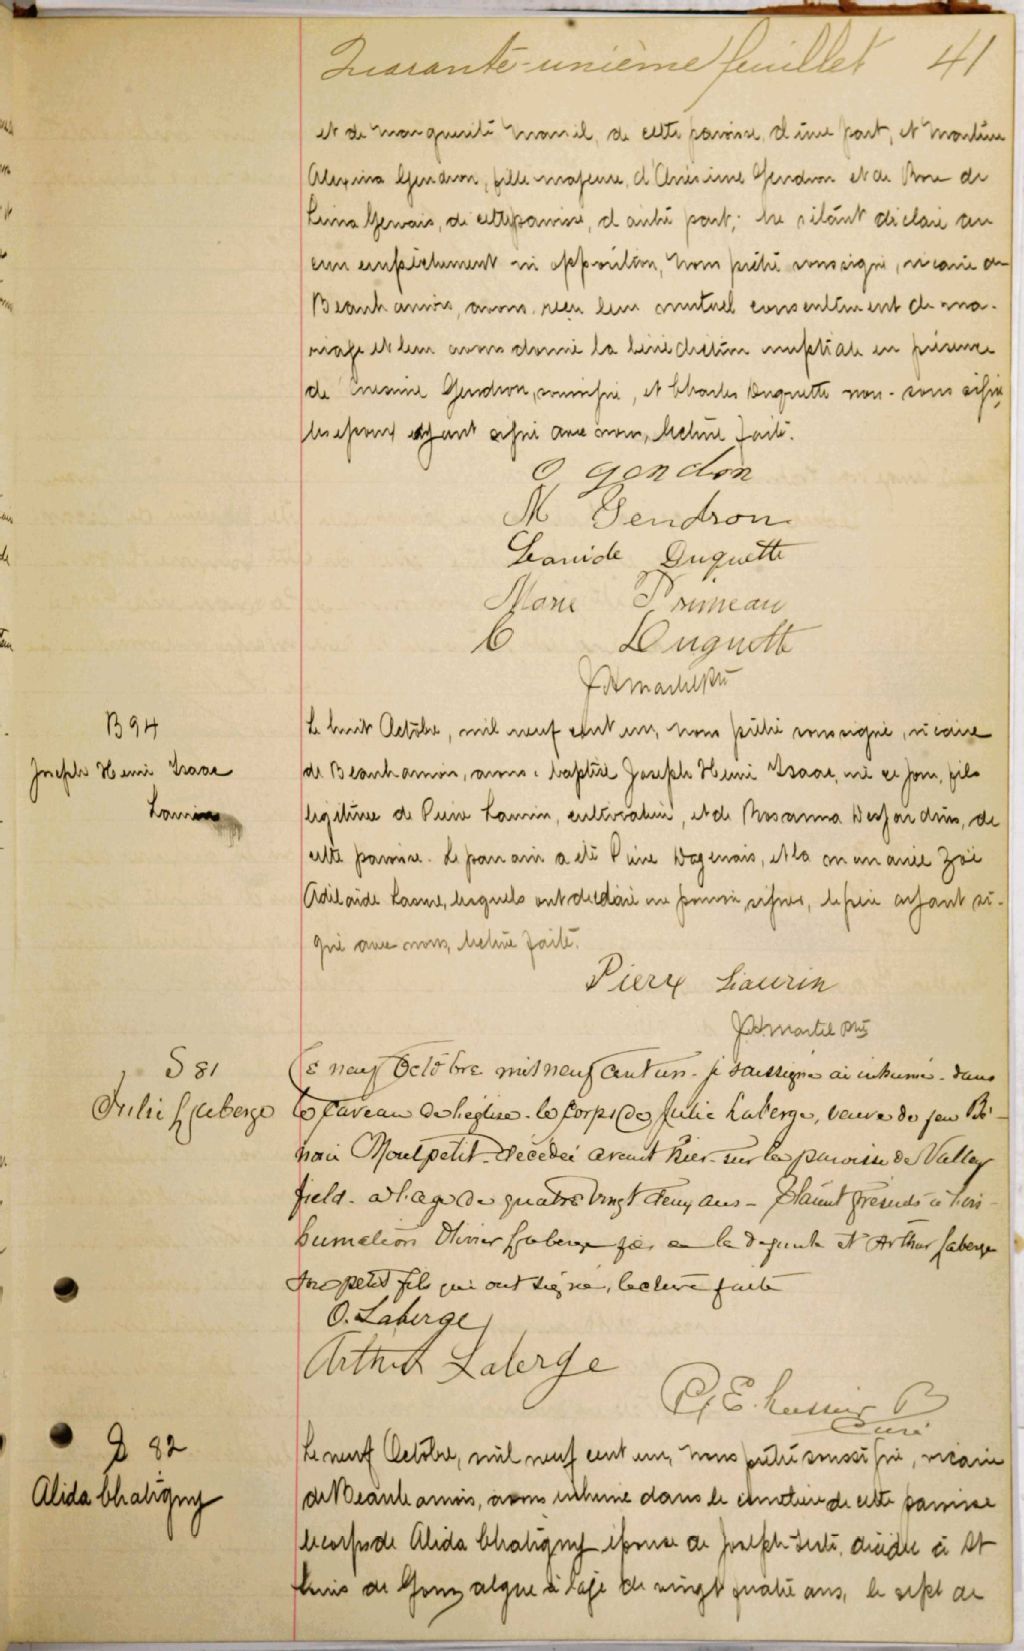 Quarante-unième feuillet 41
et de Marguerite Primeau, de cette paroisse, d'une part, et
Alexina Gendron, fille majeure, d'Onésime Gendron et de Rose de
Lima Gervais, de cette paroisse, d'autre part; ne s'étant déclaré au
cun empêchement ni opposition, Nous prêtre soussigné, vicaire de
Beauharnois, avons reçu leur mutuel consentement de ma-
riage et leur avons donné la bénédiction nuptiale en présence
de Onesime Gendron, soussigné, et Charles Duquette non-soussigné
les époux ayant signé avec nous, lecture faite.
O gendon
M Gendron
Leonide Duquette
Marie Primeau
C Duquette
J A Martel Ptre
B 94
Joseph Henri Isaac
Laurin
Le huit Octobre, mil neuf cent un, nous prêtre soussigné, vicaire
de Beauharnois, avons baptisé Joseph Henri Isaac, né ce jour, fils
légitime de Pierre Laurin, cultivateur, et de Rosanna Desjardins, de
cette paroisse. Le parrain a été Pierre Dagenais, et la marraine Zoé
Adelaide, lesquels ont déclaré ne pouvoir signer, le père ayant si-
gné avec nous, lecture faite.
Pierre Laurin
J A Martel Ptre
S 81
Julie Laberge
Le neuf Octobre mil neuf cent un - je soussigné ai inhumé - dans
le caveau de l'église - le corps de Julie Laberge, veuve de feu Bé-
noni Montpetit - décédée avant hier - sur la paroisse de Valley
field - à l'age de quatre vingt deux ans - Etaient présents à l'in-
humation Olivier Laberge de la défunte et Arthur Laberge
son petit fils qui ont signé, lecture faite
O. Laberge
Arthur Laberge
P. E. Lussier
Curé
S 82
Alida Chatigny
Le neuf Octobre, mil neuf cent un, nous prêtre soussigné, vicaire
de Beauharnois, avons inhumé dans le cimetière de cette paroisse
le corps de Alida Chatigny épouse de Joseph décédée à St
Louis de Gonzague à l'age de vingt quatre ans, le sept du